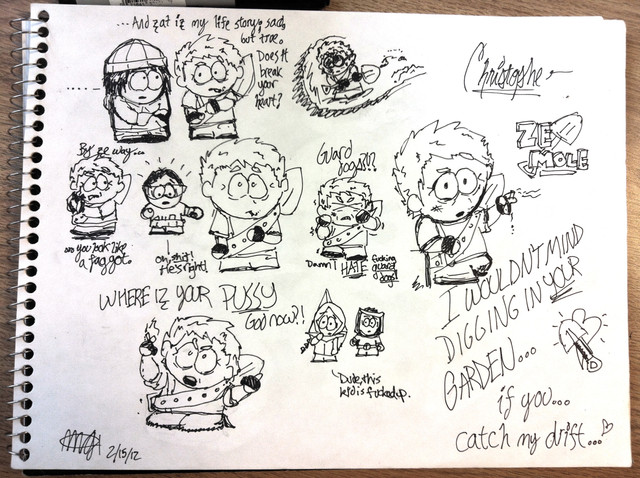 ...And zat iz my life story; sad,
but true.
Does it
break
your
heart?
......
Christophe
ZE
MOLE
By ze way...
you look like
a faggot.
Oh, shit!
He's right!
Guard
dogs!!?
Damn I HATE fucking
guard
dogs!
WHERE IZ YOUR PUSSY
God now?!
Dude, this
kid is fucked up.
I WOULDN'T MIND
DIGGING IN YOUR
GARDEN...
if you...
catch my drift...
2/15/12